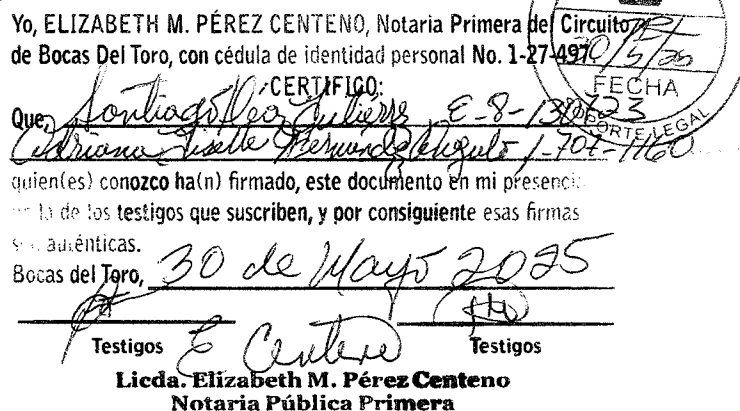 Yo, ELIZABETH M. PÉREZ CENTENO, Notaria Primera del Circuito
de Bocas Del Toro, con cédula de identidad personal No. 1-27-497
30/5/25
CERTIFICO:
FECHA
Que, Santiago Gutierrez E-8-130723
SOPORTE LEGAL
Adriana Lisette Hernandez Angulo 1-707-1160
quien(es) conozco ha(n) firmado, este documento en mi presencia
la de los testigos que suscriben, y por consiguiente esas firmas
son auténticas.
Bocas del Toro, 30 de Mayo 2025
Testigos E Centeno Testigos
Licda. Elizabeth M. Pérez Centeno
Notaria Pública Primera